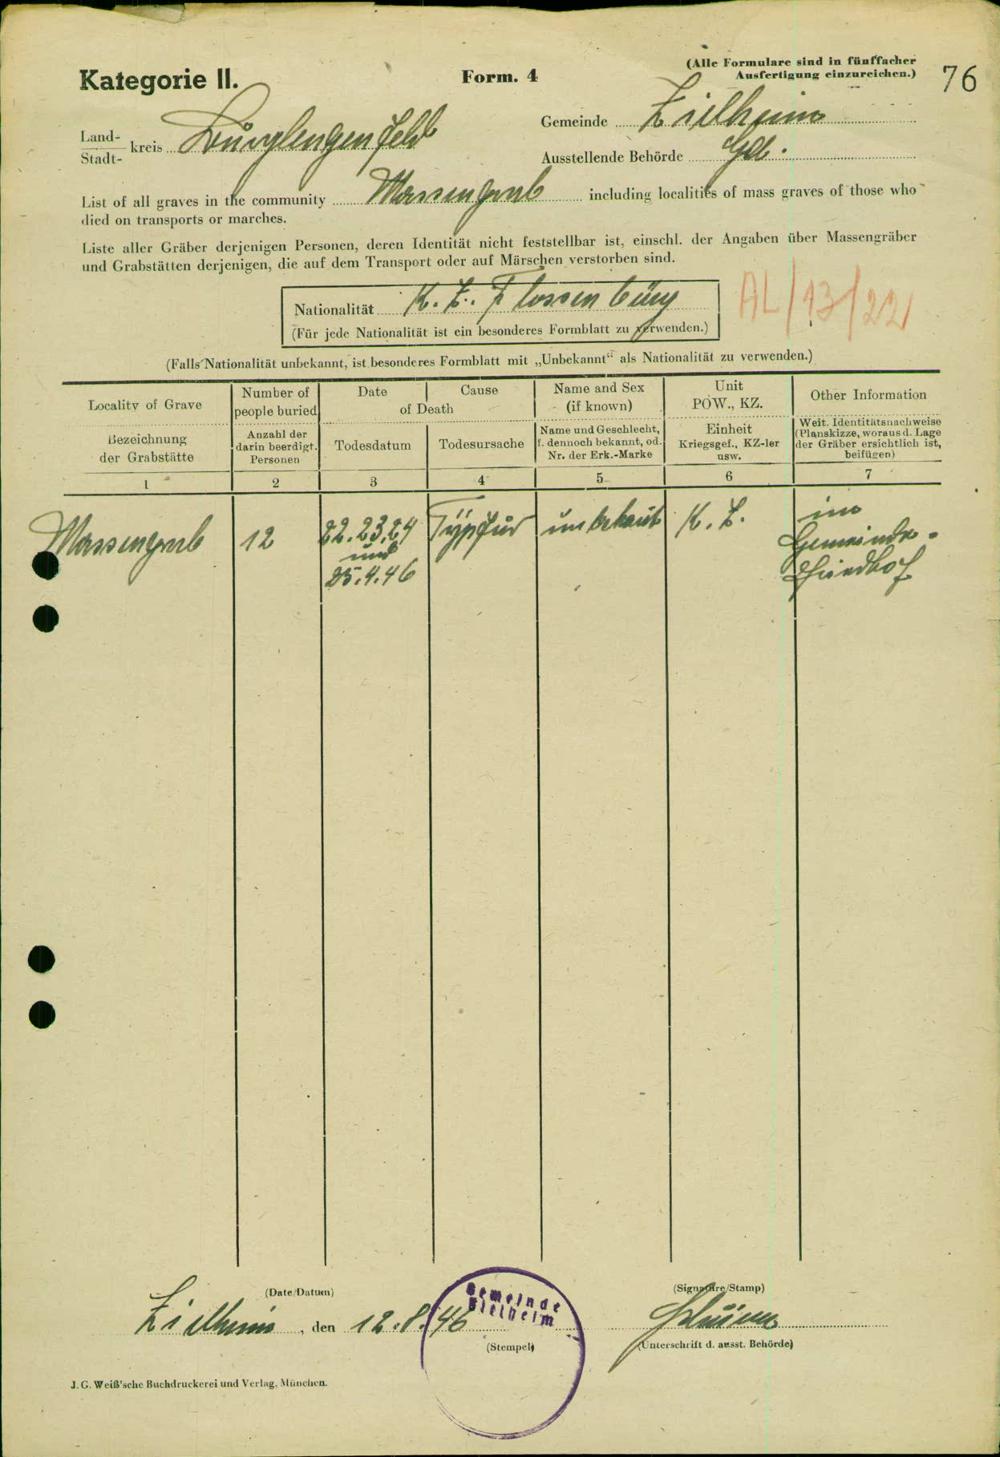 Kategorie II.
Form. 4
(Alle Formulare sind in fünffacher
Ausfertigung einzureichen.)
76
Land-
Stadt- kreis Burglengenfeld
Gemeinde Zielheim
Ausstellende Behörde Gde.
List of all graves in the community Massengrab including localities of mass graves of those who
died on transports or marches.
Liste aller Gräber derjenigen Personen, deren Identität nicht feststellbar ist, einschl. der Angaben über Massengräber
und Grabstätten derjenigen, die auf dem Transport oder auf Märschen verstorben sind.
Nationalität K. Z. Flossenbürg
(Für jede Nationalität ist ein besonderes Formblatt zu verwenden.)
AL/13/22
(Falls Nationalität unbekannt, ist besonderes Formblatt mit „Unbekannt“ als Nationalität zu verwenden.)
Locality of Grave
Bezeichnung
der Grabstätte
Number of
people buried
Anzahl der
darin beerdigt.
Personen
Date Cause
of Death
Todesdatum Todesursache
Name and Sex
(if known)
Name und Geschlecht,
f. dennoch bekannt, od.
Nr. der Erk.-Marke
Unit
POW., KZ.
Einheit
Kriegsgef., KZ-ler
usw.
Other Information
Weit. Identitätsnachweise
(Planskizze, woraus d. Lage
der Gräber ersichtlich ist,
beifügen)
1 2 3 4 5 6 7
Massengrab 12 22. 23. 24 und 25.4.46 unbekannt K. Z. im Gemeinde-
Friedhof
(Date/Datum)
Zielheim, den 12.8.46
Gemeinde
Zielheim
(Stempel)
(Signature/Stamp)
(Unterschrift d. ausst. Behörde)
J. G. Weiß'sche Buchdruckerei und Verlag, München.